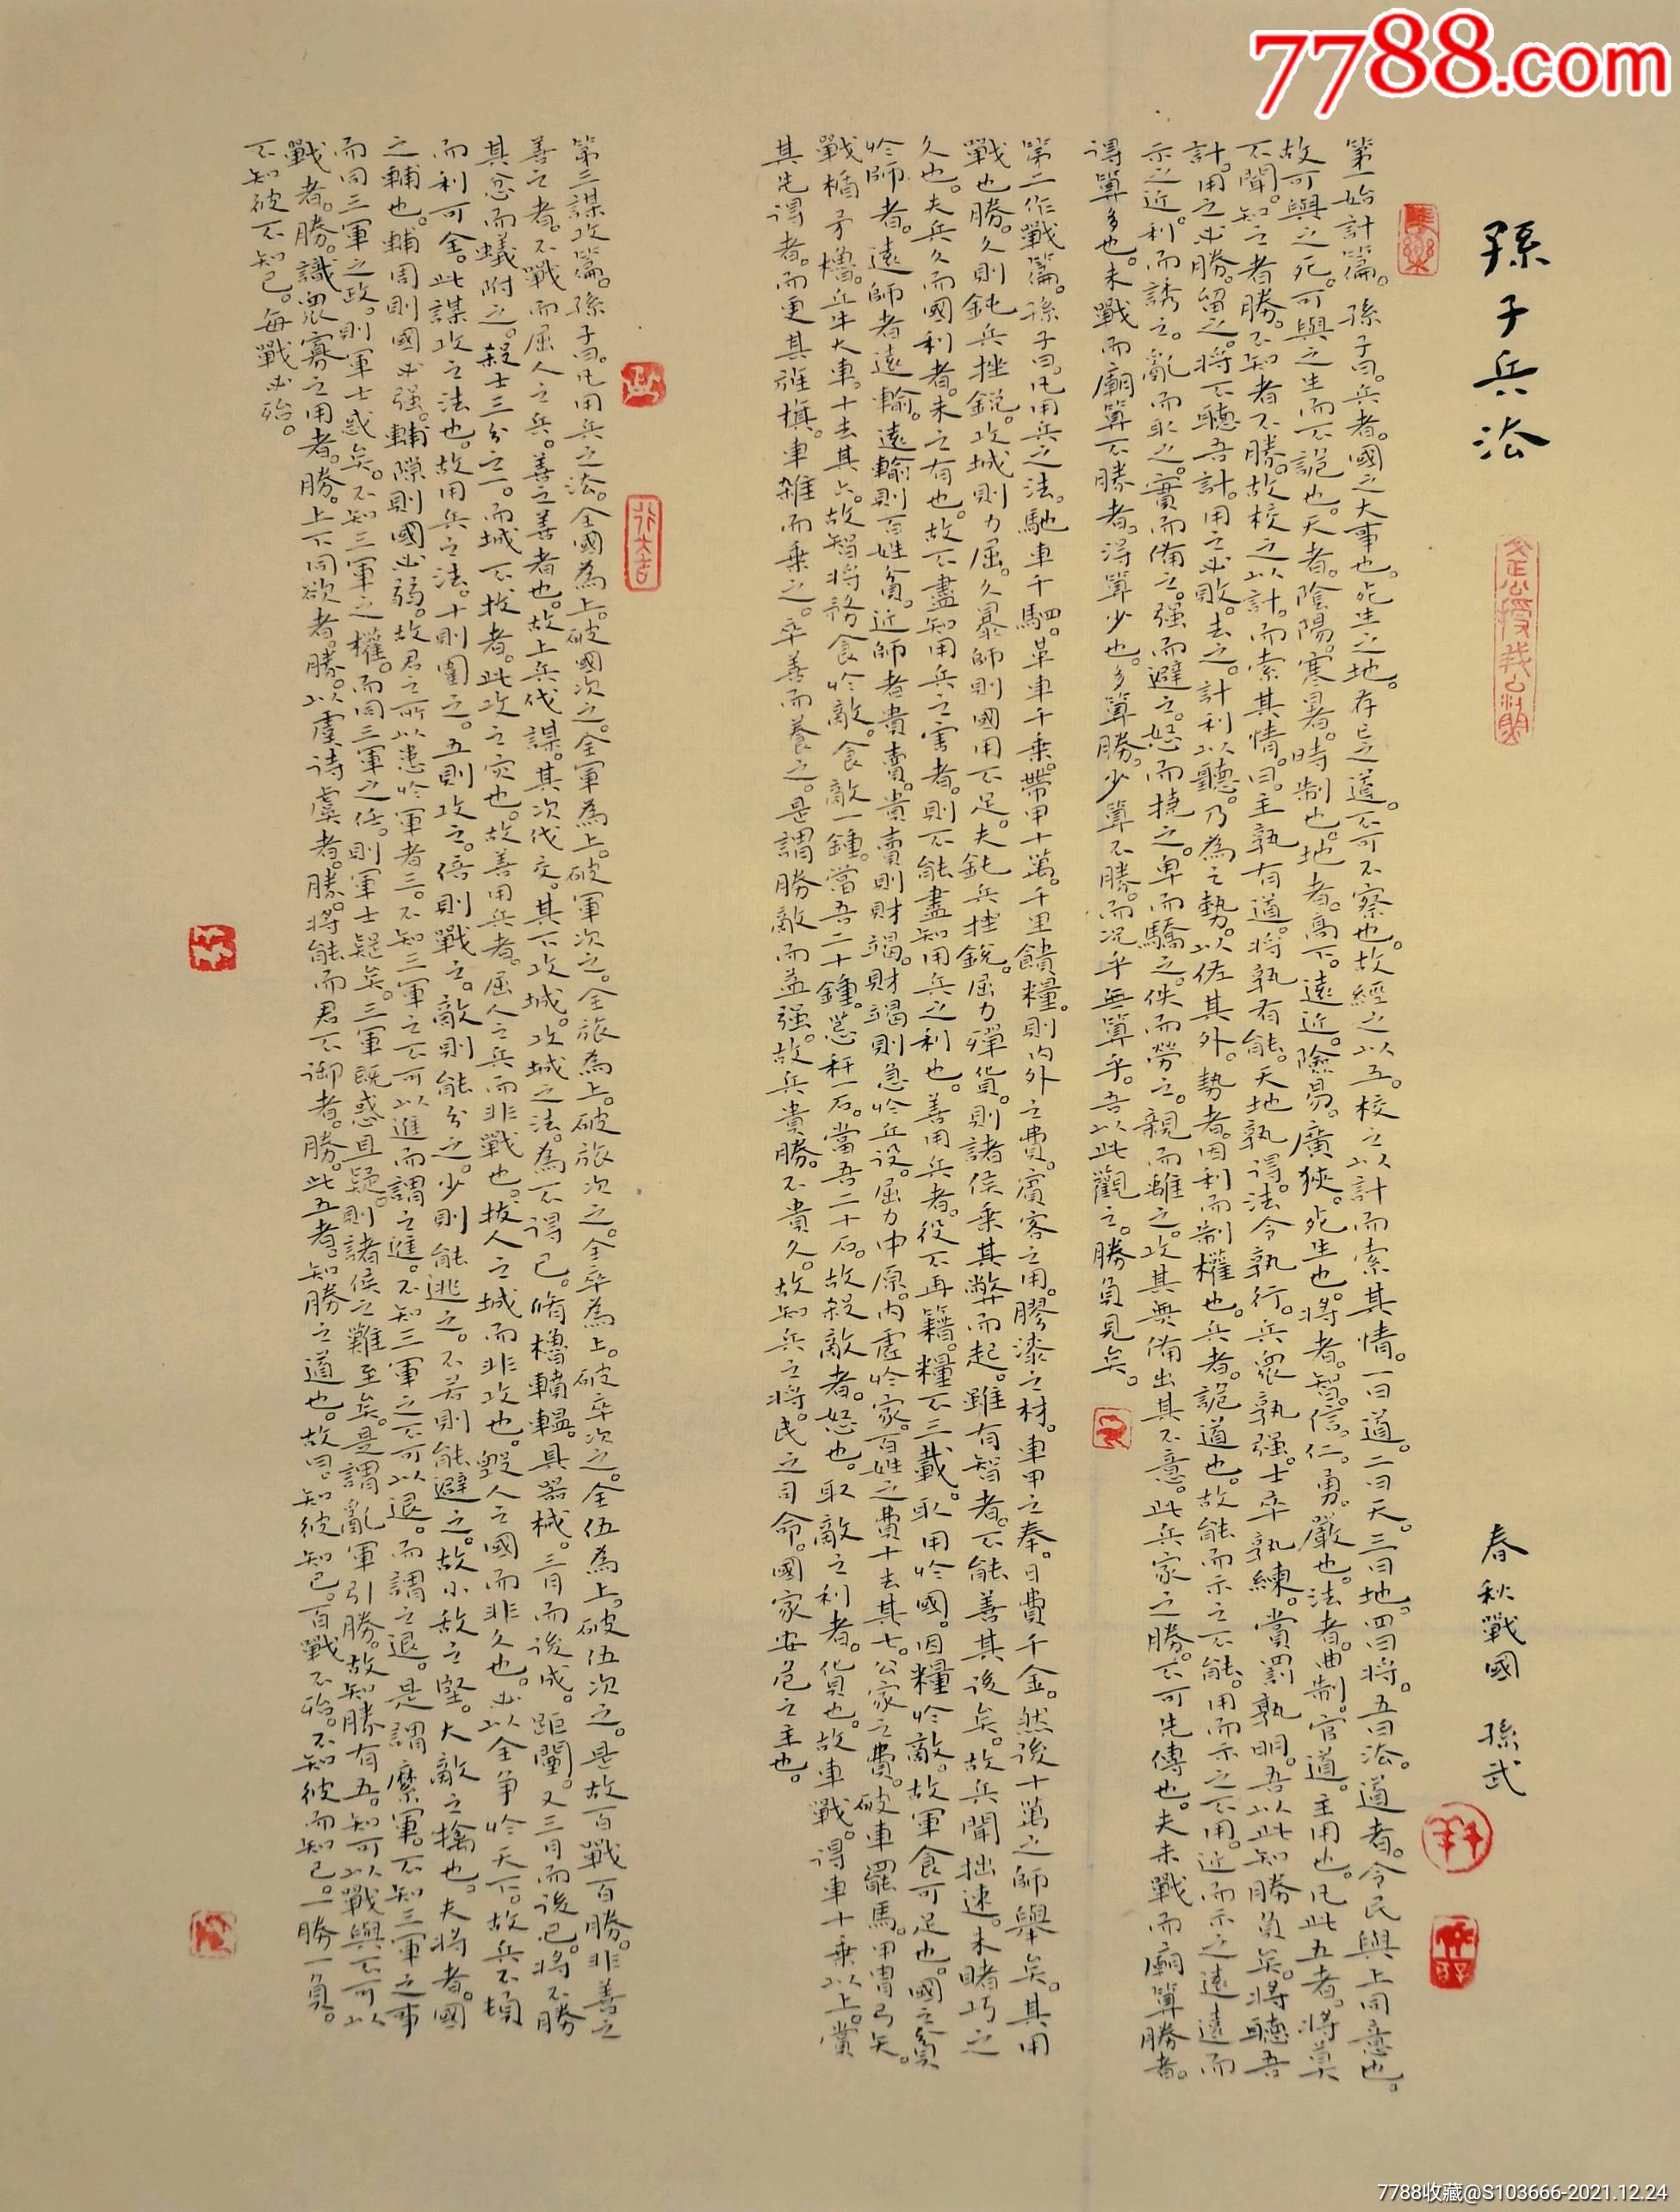 7788.com
孫子兵法
春秋戰國 孫武
第一始計篇。孫子曰。兵者。國之大事也。死生之地。存亡之道。不可不察也。故經之以五。校之以計而索其情。一曰道。二曰天。三曰地。四曰將。五曰法。道者。令民與上同意也。
故可與之死。可與之生而不詭也。天者。陰陽。寒暑。時制也。地者。高下。遠近。險易。廣狹。死生也。將者。智。信。仁。勇。嚴也。法者。曲制。官道。主用也。凡此五者。將莫
不聞。知之者勝。不知者不勝。故校之以計。而索其情。曰。主孰有道。將孰有能。天地孰得。法令孰行。兵眾孰强。士卒孰練。賞罰孰明。吾以此知勝負矣。將聽吾
計。用之必勝。留之。將不聽吾計。用之必敗。去之。計利以聽。乃為之勢。以佐其外。勢者。因利而制權也。兵者。詭道也。故能而示之不能。用而示之不用。近而示之遠遠而
示之近。利而誘之。亂而取之。實而備之。强而避之。怒而撓之。卑而驕之。佚而勞之。親而離之。攻其無備出其不意。此兵家之勝。不可先傳也。夫未戰而廟算勝者。
得算多也。未戰而廟算不勝者。得算少也。多算勝。少算不勝。而況乎無算乎。吾以此觀之。勝負見矣。
第二作戰篇。孫子曰。凡用兵之法。馳車千駟。革車千乘。帶甲十萬。千里饋糧。則內外之費。賓客之用。膠漆之材。車甲之奉。日費千金。然後十萬之師舉矣。其用
戰也勝。久則鈍兵挫銳。攻城則力屈。久暴師則國用不足。夫鈍兵挫銳。屈力殫貨。則諸侯乘其弊而起。雖有智者。不能善其後矣。故兵聞拙速。未睹巧之
久也。夫兵久而國利者。未之有也。故不盡知用兵之害者。則不能盡知用兵之利也。善用兵者。役不再籍。糧不三載。取用於國。因糧於敵。故軍食可足也。國之貧
於師者。遠師者遠輸。遠輸則百姓貧。近師者貴賣。貴賣則財竭。財竭則急於丘役。屈力中原。內虛於家。百姓之費十去其七。公家之費。破車罷馬。甲胄弓矢。
戰楯矛櫓。丘牛大車。十去其六。故智將務食於敵。食敵一鍾。當吾二十鍾。萁秆一石。當吾二十石。故殺敵者。怒也。取敵之利者。貨也。故車戰。得車十乘以上。賞
其先得者。而更其旌旗。車雜而乘之。卒善而養之。是謂勝敵而益强。故兵貴勝。不貴久。故知兵之將。民之司命。國家安危之主也。
第三謀攻篇。孫子曰。凡用兵之法。全國為上。破國次之。全軍為上。破軍次之。全旅為上。破旅次之。全卒為上。破卒次之。全伍為上。破伍次之。是故百戰百勝。非善之
善之者。不戰而屈人之兵。善之善者也。故上兵伐謀。其次伐交。其下攻城。攻城之法。為不得已。脩櫓轒輼。具器械。三月而後成。距闉。又三月而後已。將不勝
其忿而蟻附之。殺士三分之一。而城不拔者。此攻之灾也。故善用兵者。屈人之兵而非戰也。拔人之城而非攻也。毀人之國而非久也。必以全争於天下。故兵不頓
而利可全。此謀攻之法也。故用兵之法。十則圍之。五則攻之。倍則戰之。敵則能分之。少則能逃之。不若則能避之。故小敵之堅。大敵之擒也。夫將者。國
之輔也。輔周則國必强。輔隙則國必弱。故君之所以患於軍者三。不知三軍之不可以進而謂之進。不知三軍之不可以退。而謂之退。是謂縻軍。不知三軍之事
而同三軍之政。則軍士惑矣。不知三軍之權。而同三軍之任。則軍士疑矣。三軍既惑且疑。則諸侯之難至矣。是謂亂軍引勝。故知勝有五。知可以戰與不可以
戰者。勝。識眾寡之用者。勝。上下同欲者。勝。以虞待虞者。勝。將能而君不御者。勝。此五者。知勝之道也。故曰。知彼知己。百戰不殆。不知彼而知己。一勝一負。
不知彼不知己。每戰必殆。
7788收藏@S103666-2021.12.24